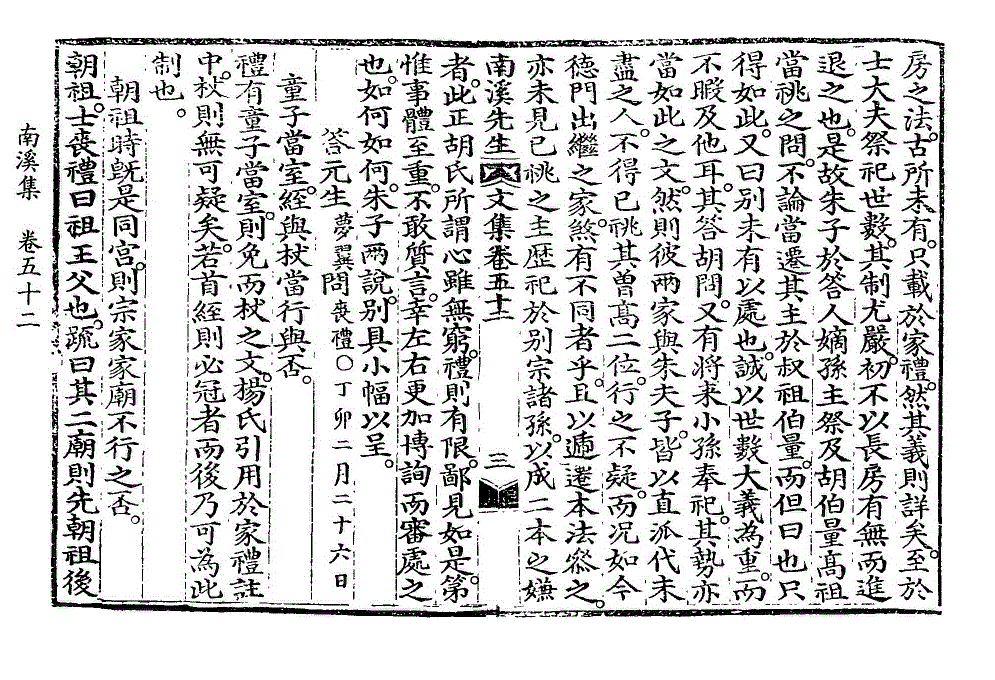 房之法。古所未有。只載於家禮。然其義則詳矣。至於
士大夫祭祀世數。其制尤嚴。初不以長房有無而進
退之也。是故朱子於答人嫡孫主祭及胡伯量高祖
當祧之問。不論當遷其主於叔祖伯量。而但曰也只
得如此。又曰別未有以處也。誠以世數大義為重。而
不暇及他耳。其答胡問。又有將來小孫奉祀。其勢亦
當如此之文。然則彼兩家與朱夫子。皆以直派代未
盡之人。不得已祧其曾高二位。行之不疑。而況如今
德門出繼之家。煞有不同者乎。且以遞遷本法參之。
亦未見已祧之主歷祀於別宗諸孫。以成二本之嫌
南溪先生文集卷五十二 三
者。此正胡氏所謂心雖無窮。禮則有限。鄙見如是。第
惟事體至重。不敢質言。幸左右更加博詢而審處之
也。如何如何。朱子兩說。別具小幅以呈。
答元生夢翼問喪禮○丁卯二月二十六日
童子當室。絰與杖當行與否。
禮有童子當室。則免而杖之文。楊氏引用於家禮註
中。杖則無可疑矣。若首絰則必冠者而後乃可為此
制也。
朝祖時旣是同宮。則宗家家廟不行之否。
朝祖。士喪禮曰祖王父也。䟽曰其二廟則先朝祖後
南溪集 卷五十二